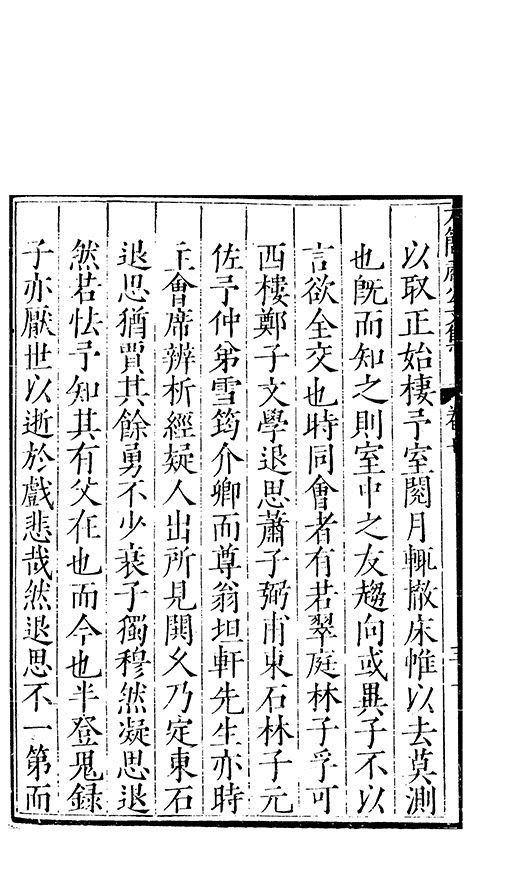 以取正始棲予室閱月輒撤床帷以去莫測
也旣而知之則室中之友趨向或異子不以
言欲全交也時同會者有若翠庭林子孚可
西棲鄭子文學退思蕭子弼甫東石林子元
佐予仲弟雪筠介卿而尊翁坦軒先生亦時
主會席辨析經疑人出所見鬨久乃定東石
退思猶賈其餘勇不少衰子獨穆然凝思退
然若怯予知其有父在也而今也半登鬼錄
子亦厭世以逝於戲悲哉然退思不一第而